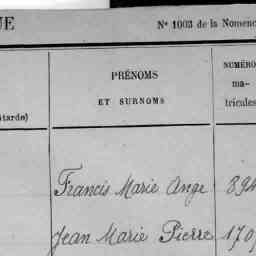 UE N° 1003 de la Nomenc
PRÉNOMS
ET SURNOMS
NUMÉRO
ma-
tricales
âtarde)
Francis Marie Ange 894
Jean Marie Pierre 170